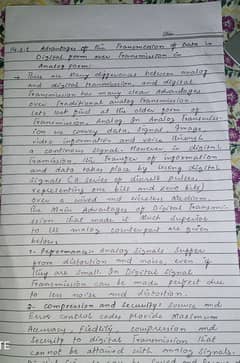 Advantages of the Transmission of Data in
Digital form over Transmission in
Analog form:
→ There are many differences between analog
and digital transmission, and digital
Transmission has many clear advantages
over traditional analog transmission.
Lets but find out the older form of
Transmission Analog. In Analog Transmiss-
ion we convey data, signal Image
video information and voice through
a continuous signal. However in digital
Transmission, the Transfer of information
and data takes place by using digital
signals (a series of discrete pulses,
representing one bits and zero bits)
over a wired and wireless medium.
The Main Advantages of Digital Transmis-
sion that made it much superior
to its analog counterpart are given
below:
1- Performance: Analog Signals suffer
from distortion and noise, even if
they are small. In Digital Signal
Transmission can be made perfect due
to less noise and distortion.
2- Compression and Security:
Error control codes provide Maximum
Accuracy, Fidelity, compression and
Security to digital Transmission that
can not be attained with analog signals.